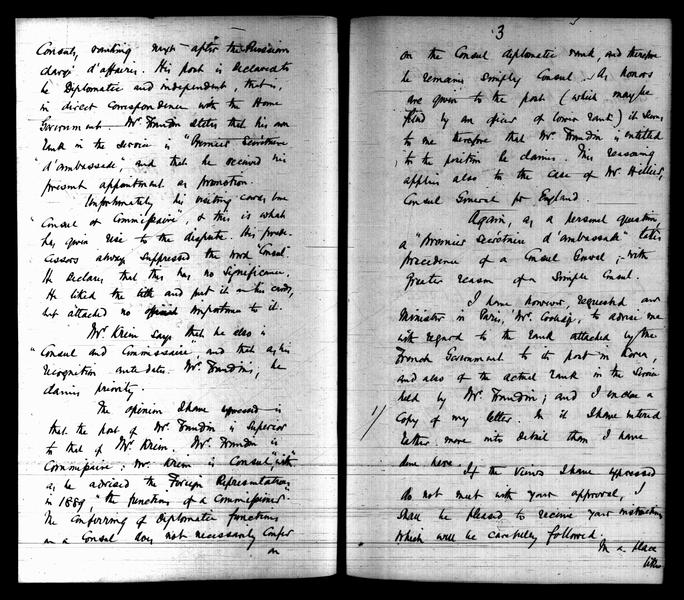 Consuls, ranking next after the Russian
chargé d'affaires. His post is declared to
be Diplomatic and independent, that is,
in direct correspondence with the Home
Government. Mr. Frandin states that his own
rank in the service is "Premier Secrétaire
d'ambassade", and that he received his
present appointment as promotion.
Unfortunately his visiting cards, bear
"Consul et Commissaire", & this is what
has given rise to the dispute. His prede-
cessors always suppressed the word "Consul"
He declares that this has no significance.
He liked the title and put it on his cards,
but attached no official importance to it.
Mr. Krein says that he also is
"Consul and Commissaire", and that as his
recognition ante dates Mr. Frandin's, he
claims priority.
The opinion I have expressed is
that the post of Mr. Frandin is superior
to that of Mr. Krein. Mr. Frandin is
Commissaire; Mr. Krein is Consul, "with"
as he advised the Foreign Representatives
in 1889, "the functions of a Commissioner".
The conferring of Diplomatic functions
on a Consul does not necessarily confer
on
3
on the Consul diplomatic rank, and therefore
he remains simply Consul. As honors
are given to the post (which may be
filled by an officer of lower rank) it seems
to me therefore that Mr. Frandin is entitled
to the position he claims. This reasoning
applies also to the case of Mr. Hillier,
Consul General for England.
Again, as a personal question,
a "Premier Secrétaire d'Ambassade" takes
precedence of a Consul General; with
greater reason of a simple Consul.
I have however, requested our
Minister in Paris, Mr. Coolidge, to advise me
with regard to the rank attached by the
French Government to its post in Korea,
and also of the actual rank in the service
held by Mr. Frandin; and I enclose a
1/ copy of my letter. In it I have entered
rather more into detail than I have
done here.
If the views I have expressed
do not meet with your approval, I
shall be pleased to receive your instructions
which will be carefully followed.
In a place
like